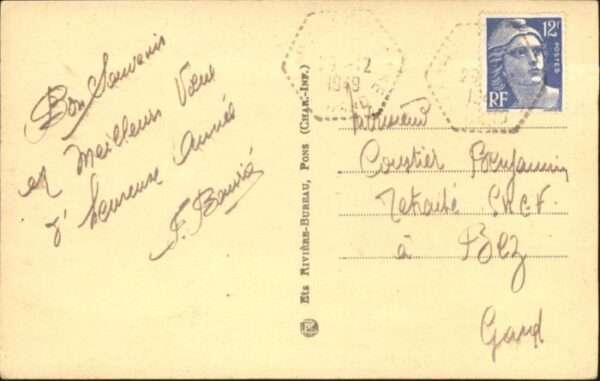 Bon Souvenir
et Meilleurs Vœux
d'heureuse Année
F. Bourié
Ets RIVIÈRE-BUREAU, PONS (CHAR.-INF.)
12
1949
12F
POSTES
RF
Monsieur
Coustier Benjamin
Retraité S.N.C.F.
à
Gard